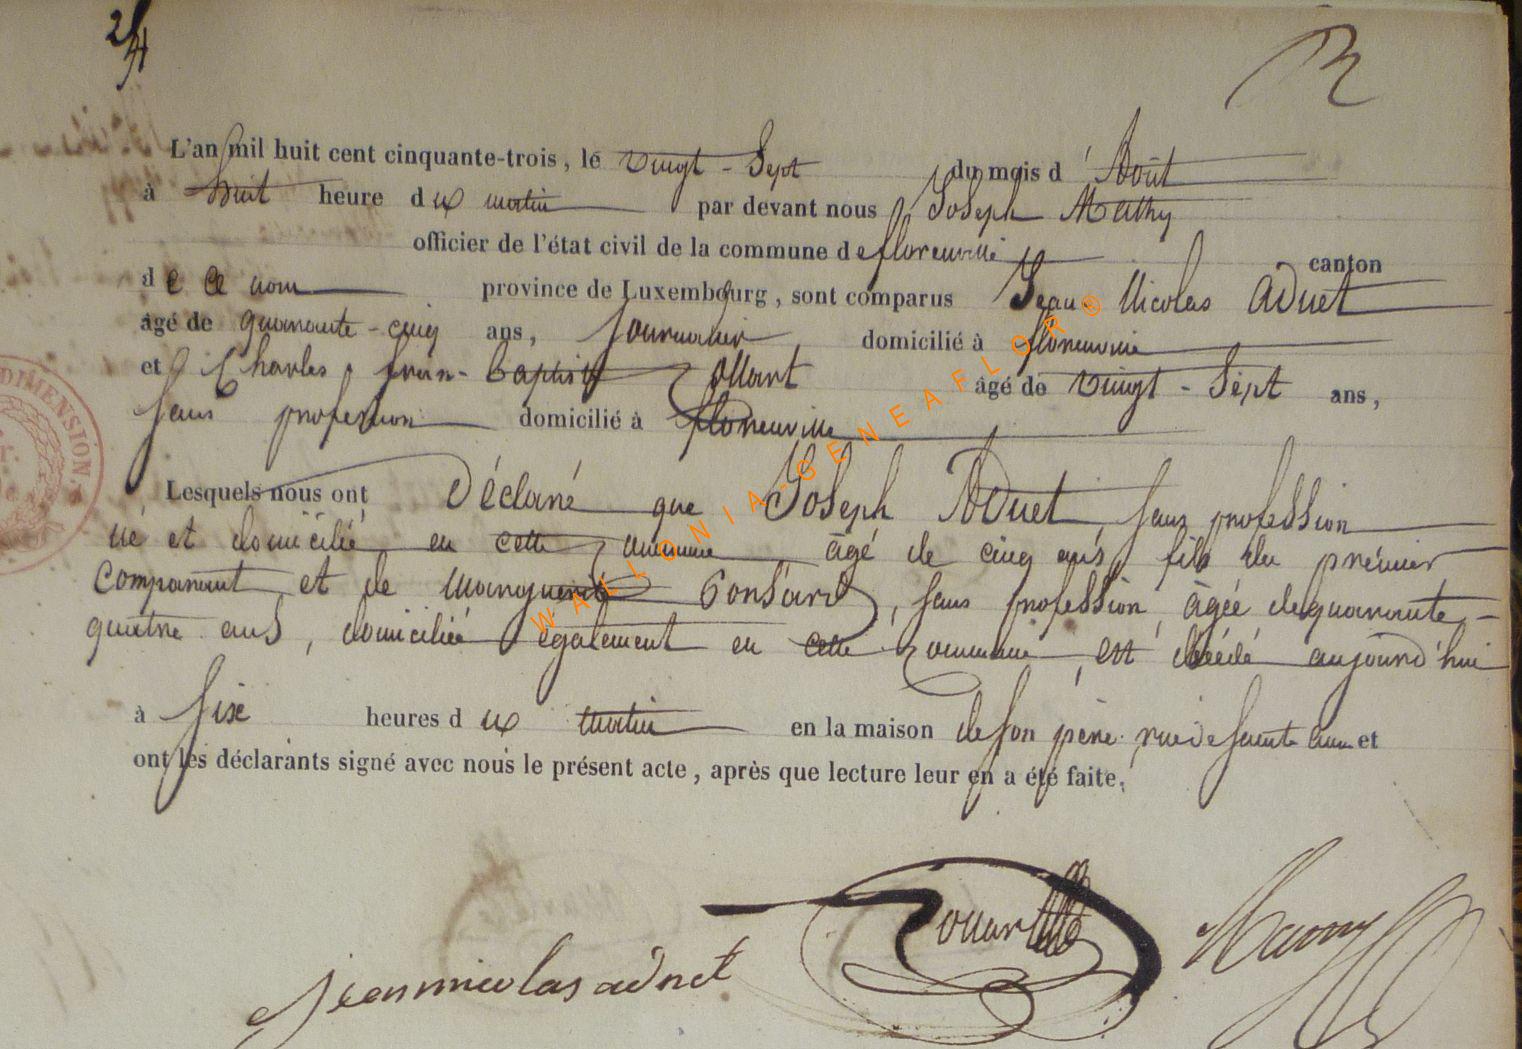 24
L'an mil huit cent cinquante-trois, le vingt-Sept du mois d'Août
à huit heure du matin par devant nous Joseph Mathy
officier de l'état civil de la commune de florenville canton
de ce nom province de Luxembourg, sont comparus Jean Nicolas Adnet
âgé de quarante-cinq ans, journalier domicilié à florenville
et Charles jean-baptiste Collart âgé de vingt-Sept ans,
sans profession domicilié à florenville
Lesquels nous ont Déclaré que Joseph Adnet, sans profession
né et domicilié en cette commune âgé de cinq ans fils du prémier
comparant et de marguerite Ponsard, sans profession, âgée de quarante-
quatre ans, domiciliée également en cette commune, est décédé aujourd'hui
à six heures du matin en la maison de son père rue de sainte anne et
ont les déclarants signé avec nous le présent acte, après que lecture leur en a été faite.
jean nicolas adnet
WALLONIA-GENEAFLOR®
DIMENSION.